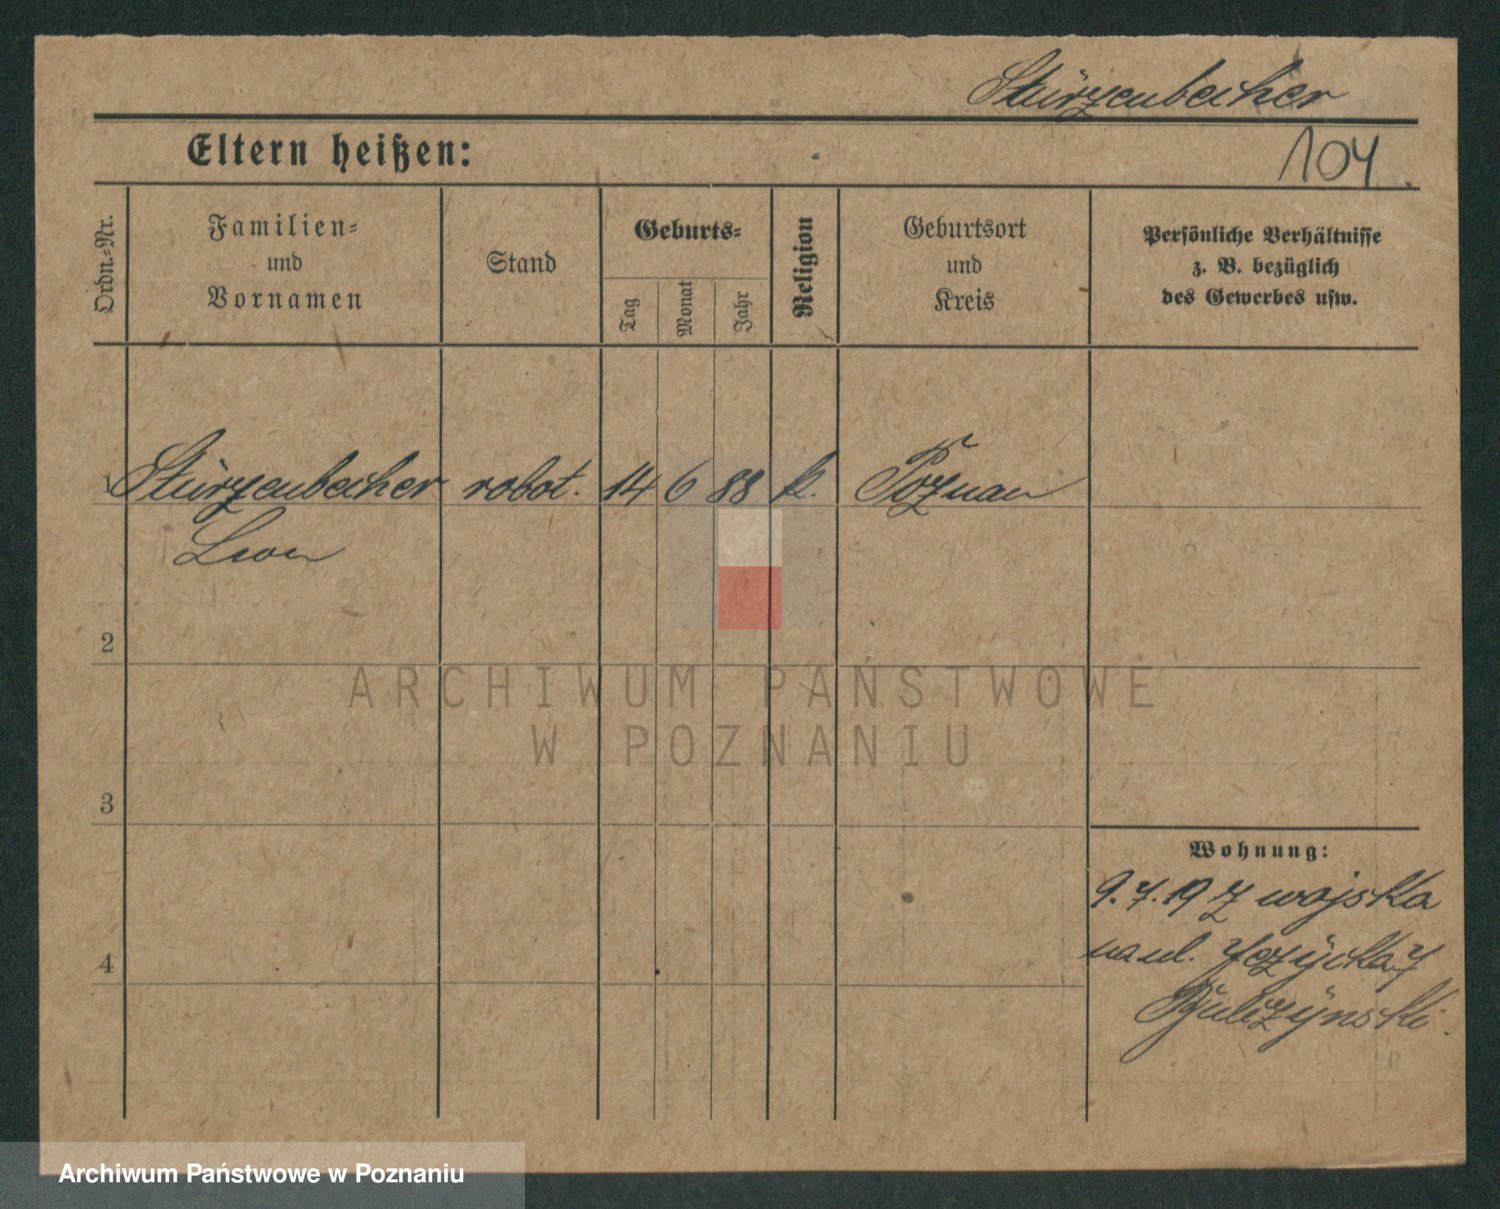 Stürzenbecher
Eltern heißen:
104
Ordn.-Nr.
Familien-
und
Vornamen
Stand
Geburts-
Tag
Monat
Jahr
Religion
Geburtsort
und
Kreis
Persönliche Verhältnisse
z. B. bezüglich
des Gewerbes usw.
1 Stürzenbecher robot. 14 6 88 k. Poznan
Leon
2
ARCHIWUM PAŃSTWOWE
W POZNANIU
3
Wohnung:
9.7.19 z wojska
na ul.
4
Archiwum Państwowe w Poznaniu